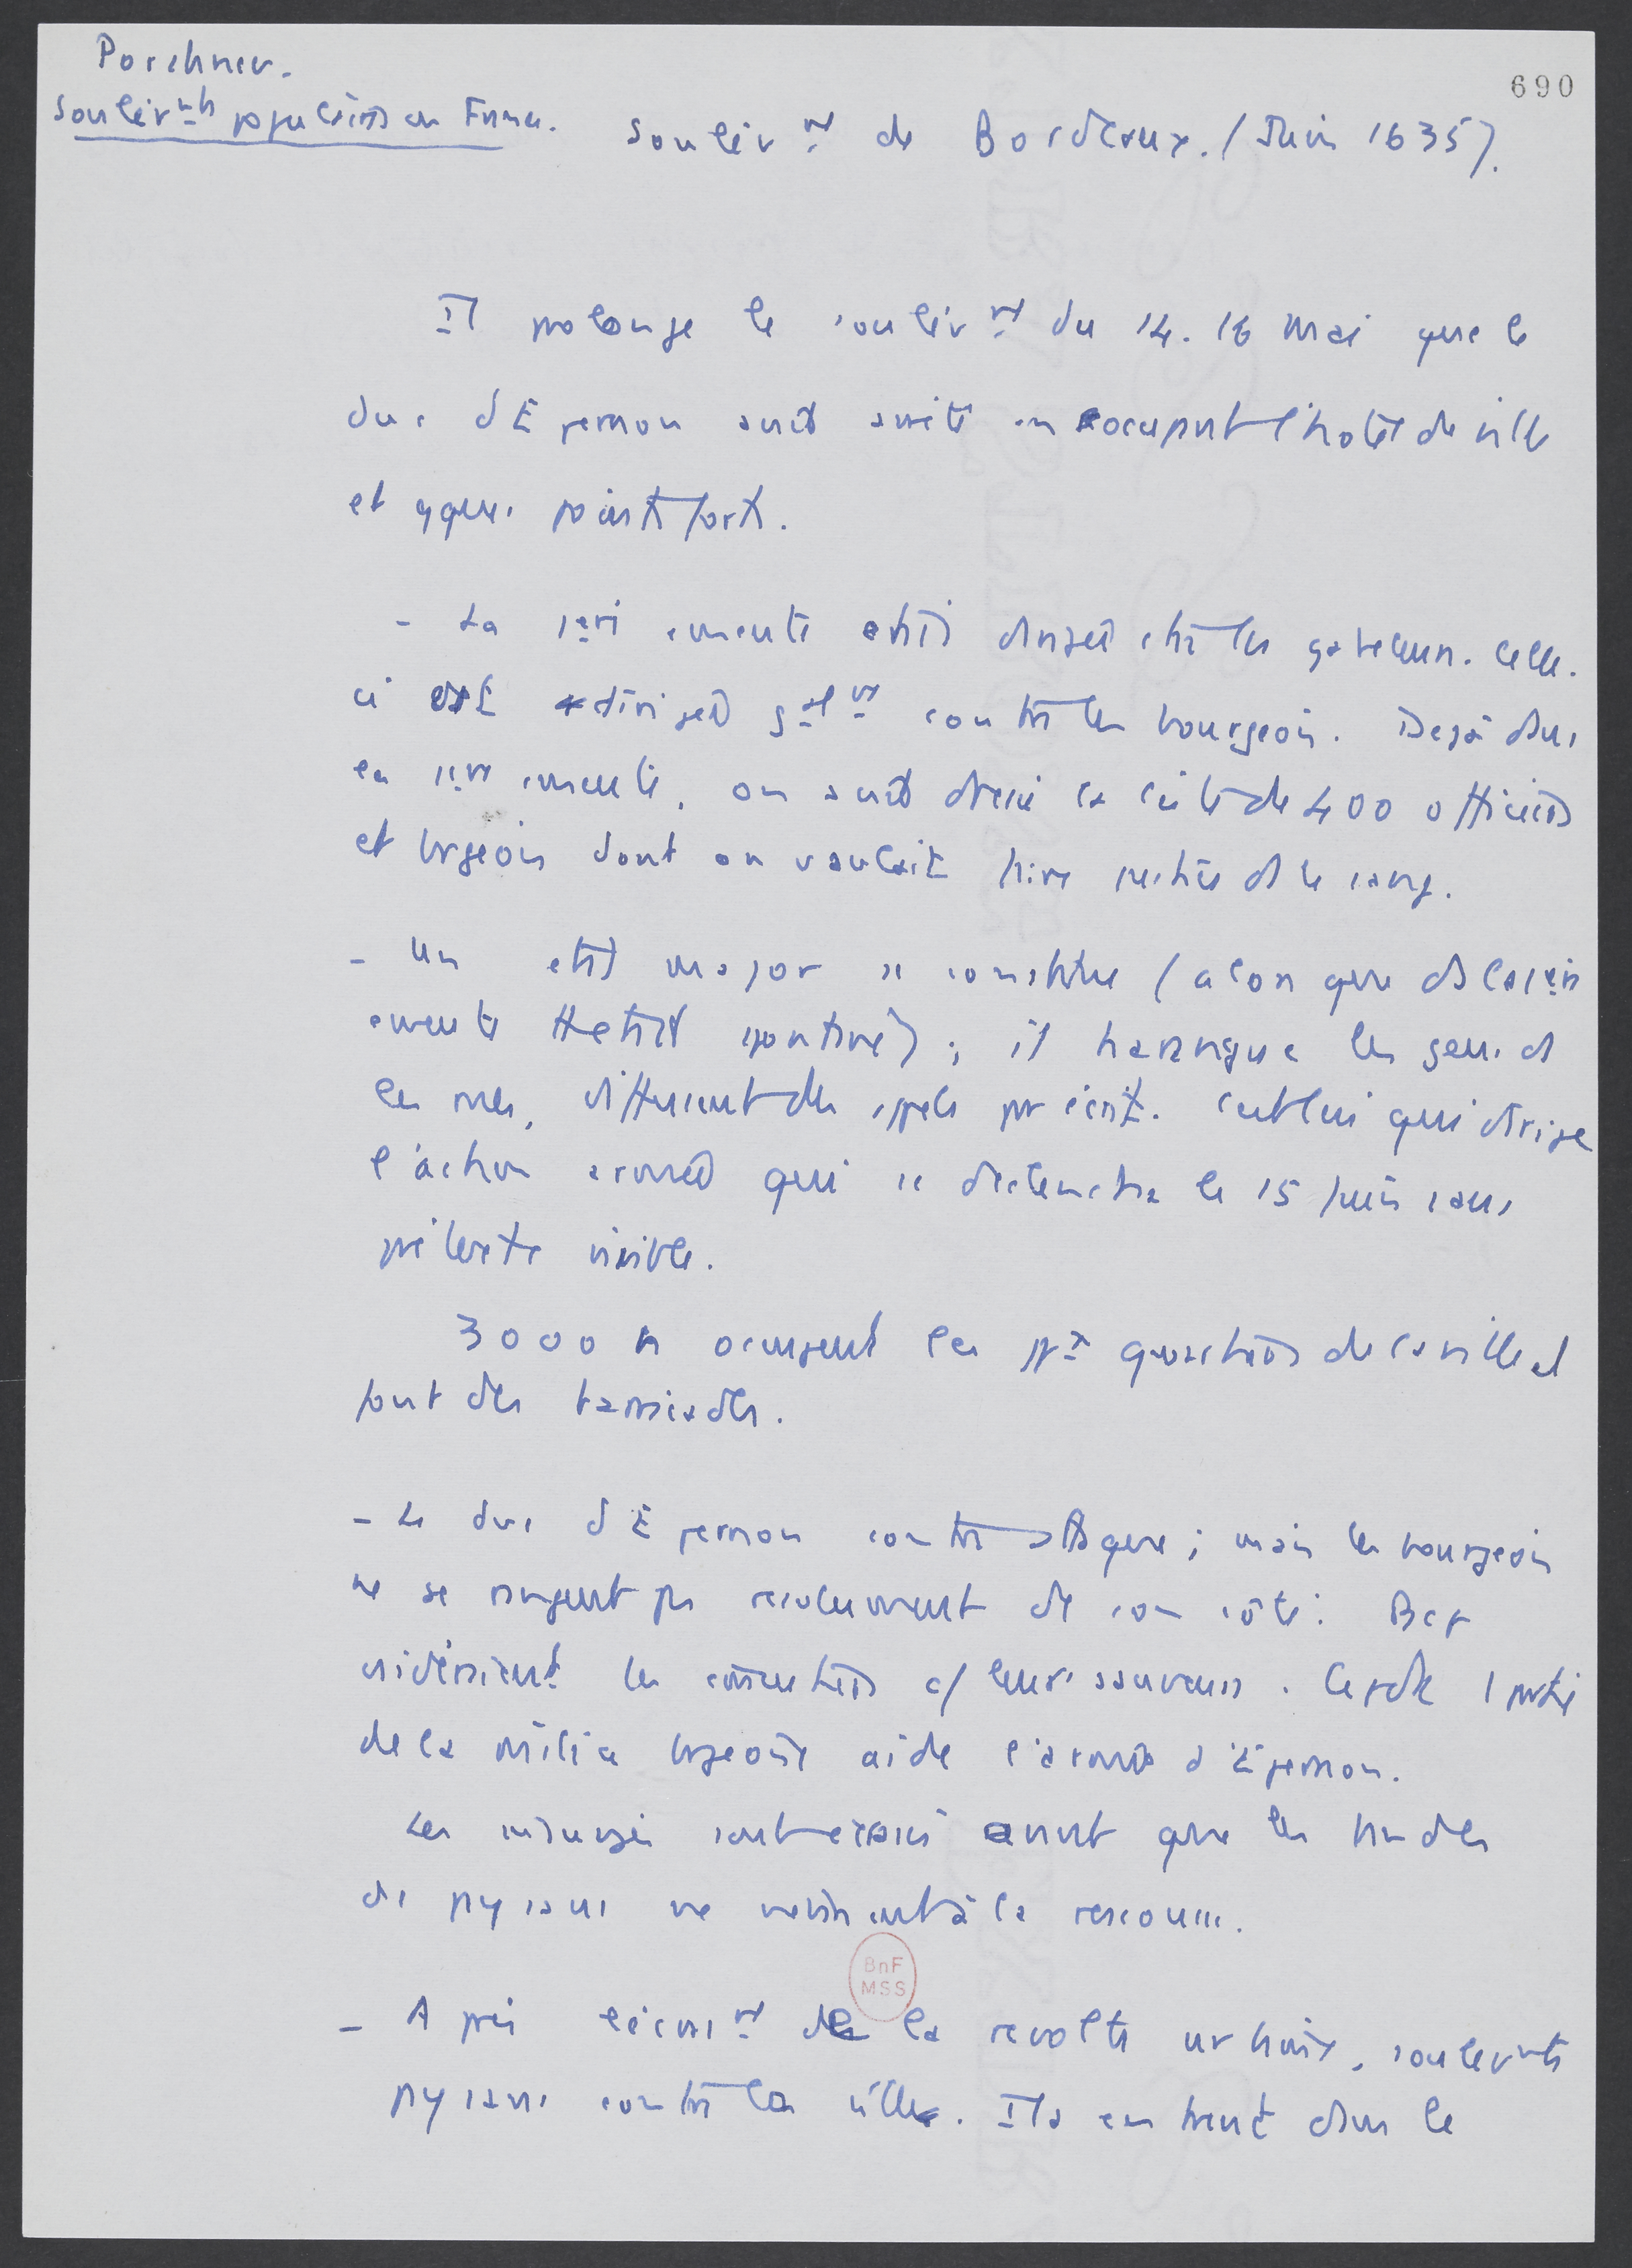 Porchnev.
Soulèvmts populaires en France.
690
Soulèvmt de Bordeaux. (Juin 1635).
Il prolonge le soulèvmt du 14.16 mai que le
duc d'Epernon avait arrêté en occupant l'hôtel de ville
et qques points forts.
- La 1ère émeute était dirigée ctre les gabeleurs. Celle.
ci est dirigée galmt contre les bourgeois. Déjà dans
la 1ère émeute, on avait dressé la liste de 400 officiers
et brgeois dont on voulait
- Un état major se constitue (alors que ds la 1ère
émeute était spontané) ; il harangue les gens ds
les rues, diffusent des appels par écrit. C'est lui qui dirige
l'action armée qui se déclencha le 15 juin sans
prétexte visible.
3000 h occupent les ppx quartiers de la ville et
font des barricades.
- Le duc d'Epernon contre attaque ; mais les bourgeois
ne se rangent pas résolument de son côté. Bcp
considéraient les émeutiers c/ leurs sauveurs. Cepdt 1 partie
de la milice brgeoise aide l'armée d'Epernon.
Les insurgés sont écrasés avant que les bandes
de paysans ne viennent à la rescousse.
- Après l'écrasmt de la révolte urbaine, soulevmts
paysans contre la ville. Ils entrent dans le
BnF
MSS